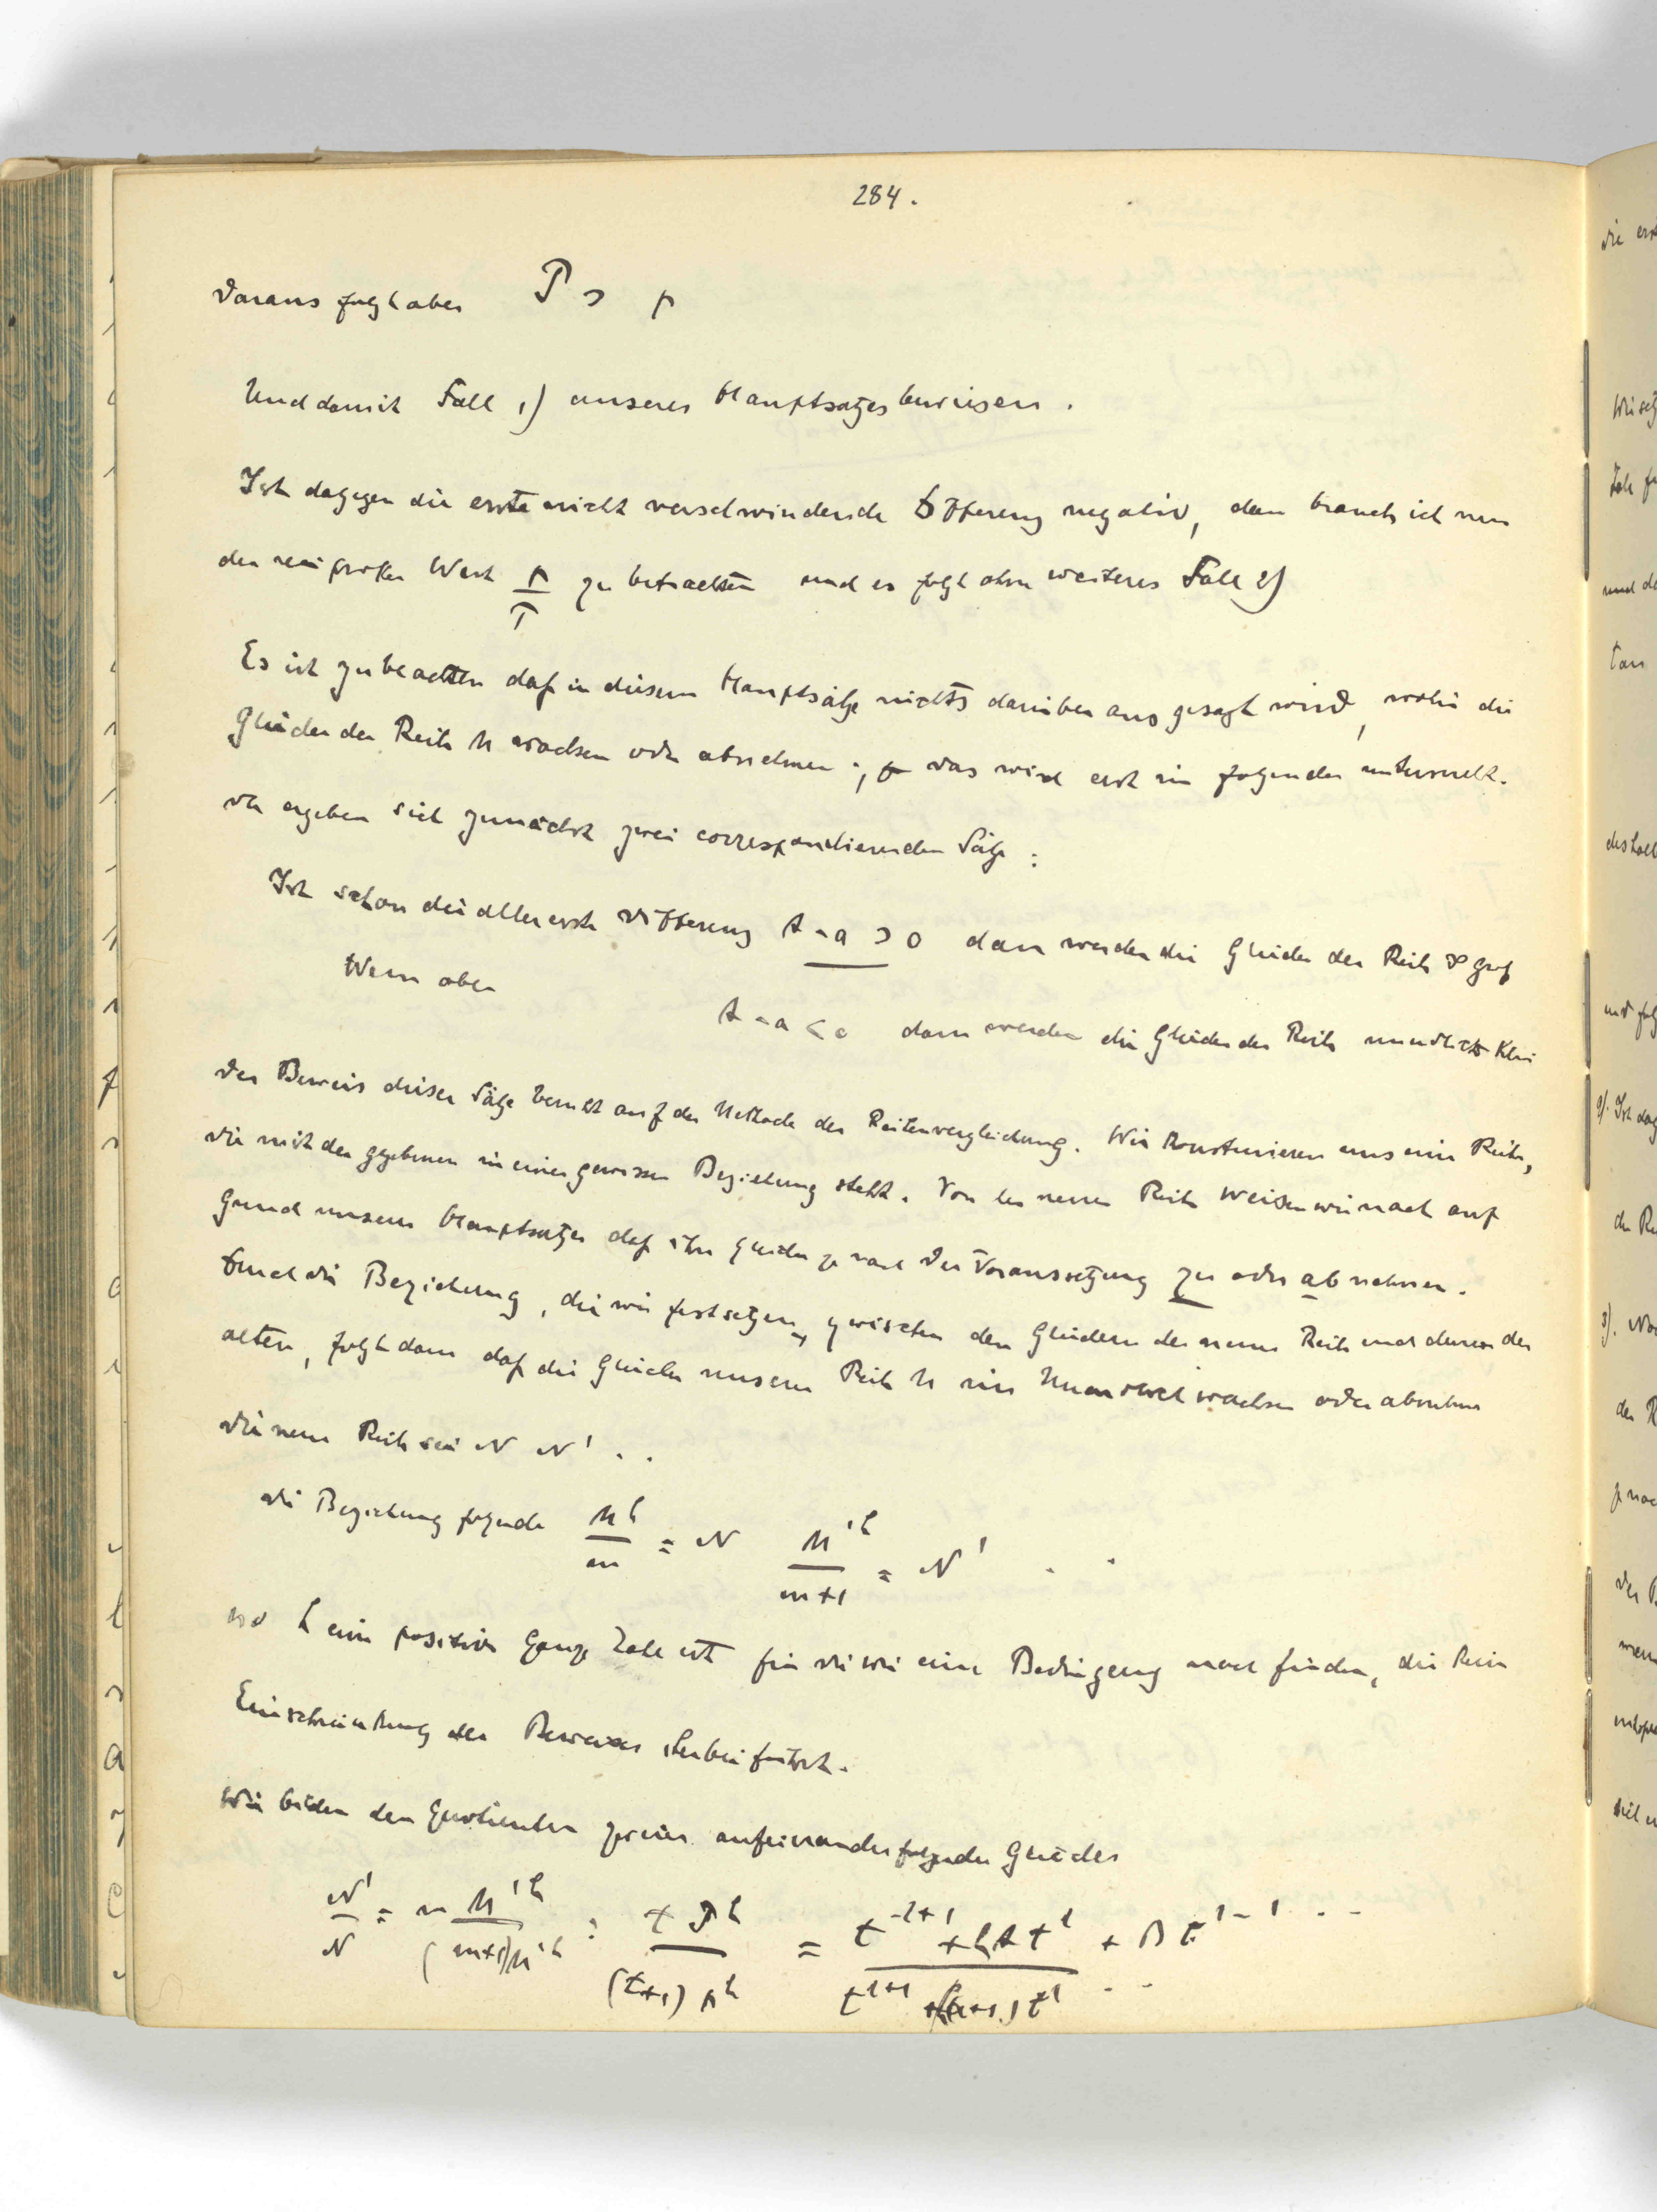 284.
daraus folgt aber P > p
Und damit Fall 1) unseres Hauptsatzes bewiesen.
Ist dagegen die erste nicht verschwindende Differenz negativ, dann brauch ich nur
den reciproken Wert p/P zu betrachten und es folgt ohne weiteres Fall 2)
Es ist zu beachten daß in diesem Hauptsatze nichts darüber ausgesagt wird, wohin die
Glieder der Reihe M wachsen oder abnehmen; das wird erst im folgenden untersucht.
da ergeben sich zunächst zwei correspondierenden Sätze:
Ist schon die allererste Differenz A - a > 0 dann werden die Glieder der Reihe ∞ groß
Wenn aber
A - a < 0 dann werden die Glieder der Reihe unendlich klein
Der Beweis dieser Sätze beruht auf der Methode der Reihenvergleichung. Wir konstruieren uns eine Reihe,
die mit der gegebenen in einer gewissen Beziehung steht. Von der neuen Reihe weisen wir nach auf
Grund unseres Hauptsatzes daß ihre Glieder je nach der Voraussetzung zu oder abnehmen.
Durch die Beziehung, die wir festsetzen, zwischen den Gliedern der neuen Reihe und denen der
alten, folgt dann daß die Glieder unserer Reihe M ins Unendl. wachsen oder abnehmen
die neue Reihe sei N N' . .
die Beziehung folgende M^h/m = N M'^h/m+1 = N' . .
wo h eine positive ganze Zahl ist für die wir eine Bedingung noch finden, die keine
Einschränkung des Beweises herbeiführt.
Wir bilden den Quotienten zweier aufeinanderfolgender Glieder
N'/N = m M'^h/(m+1)M^h : t P^h/(t+1) p^h = t^λ+1 + hA t^λ + B t^λ-1 . . / t^λ+1 . .